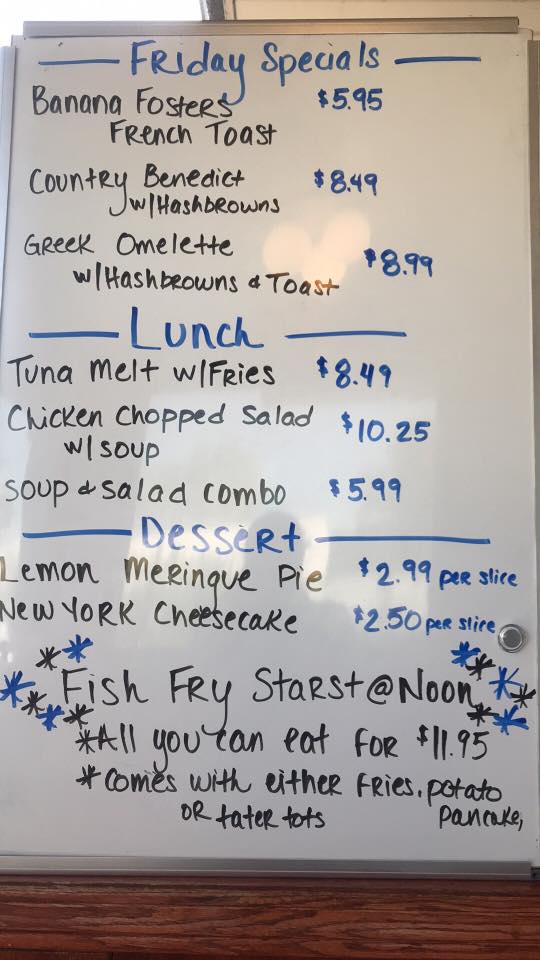 Friday Specials
Banana Fosters $5.95
French Toast
Country Benedict $8.49
w/Hashbrowns
Greek Omelette $8.99
w/Hashbrowns & Toast
Lunch
Tuna Melt w/Fries $8.49
Chicken Chopped Salad $10.25
w/soup
Soup & Salad Combo $5.99
Dessert
Lemon Meringue Pie $2.99 per slice
New York Cheesecake $2.50 per slice
Fish Fry Starst@Noon
*All you can eat for $11.95
*comes with either fries, potato
or tater tots pancake,